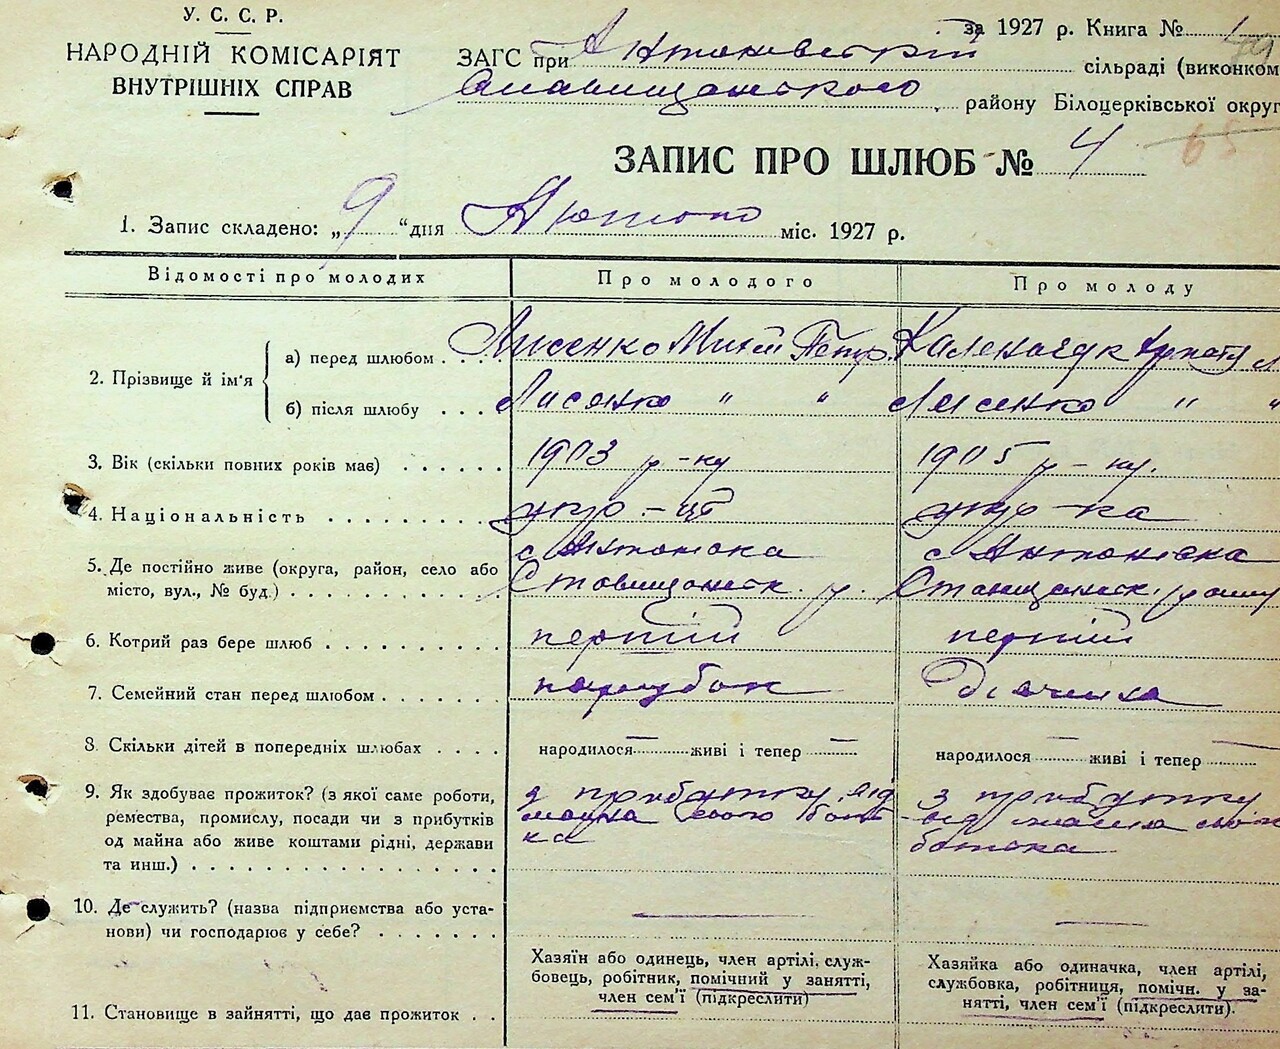 У. С. С. Р.
НАРОДНІЙ КОМІСАРІЯТ
ВНУТРІШНІХ СПРАВ
за 1927 р. Книга №
ЗАГС при Антонівській сільраді (виконком
Ставищанського району Білоцерківської округ
ЗАПИС ПРО ШЛЮБ № 4 65
1. Запис складено: „9 “ дня Лютого міс. 1927 р.
Відомості про молодих Про молодого Про молоду
2. Прізвище й ім'я
а) перед шлюбом . Лисенко Петр.
б) після шлюбу . . . Лисенко " " Лисенко " "
3. Вік (скільки повних років має) . . . . . . 1903 р-ку 1905 р-ку.
4. Національність . . . . . . . . укр-ць укр-ка
5. Де постійно живе (округа, район, село або місто, вул., № буд.) . . . . . . . . . .
с Антонівка Ставищанськ. р.
с Антонівка Ставищанськ. району
6. Котрий раз бере шлюб . . . . . . . . . . перший перший
7. Семейний стан перед шлюбом . . . . . . . парубок дівчина
8. Скільки дітей в попередніх шлюбах . . . . народилося — живі і тепер — народилося — живі і тепер —
9. Як здобуває прожиток? (з якої саме роботи,
ремества, промислу, посади чи з прибутків
од майна або живе коштами рідні, держави
та инш.) . . . . . . . . . . . . . . . .
з прибутку від
майна свого бать-
ка
з прибутку
від майна
батька
10. Де служить? (назва підприємства або уста-
нови) чи господарює у себе? . . . . . . . — —
11. Становище в зайнятті, що дає прожиток . .
Хазяїн або одинець, член артілі, служ-
бовець, робітник, помічний у занятті,
член сем'ї (підкреслити)
Хазяйка або одиначка, член артілі,
службовка, робітниця, помічн. у за-
нятті, член сем'ї (підкреслити).